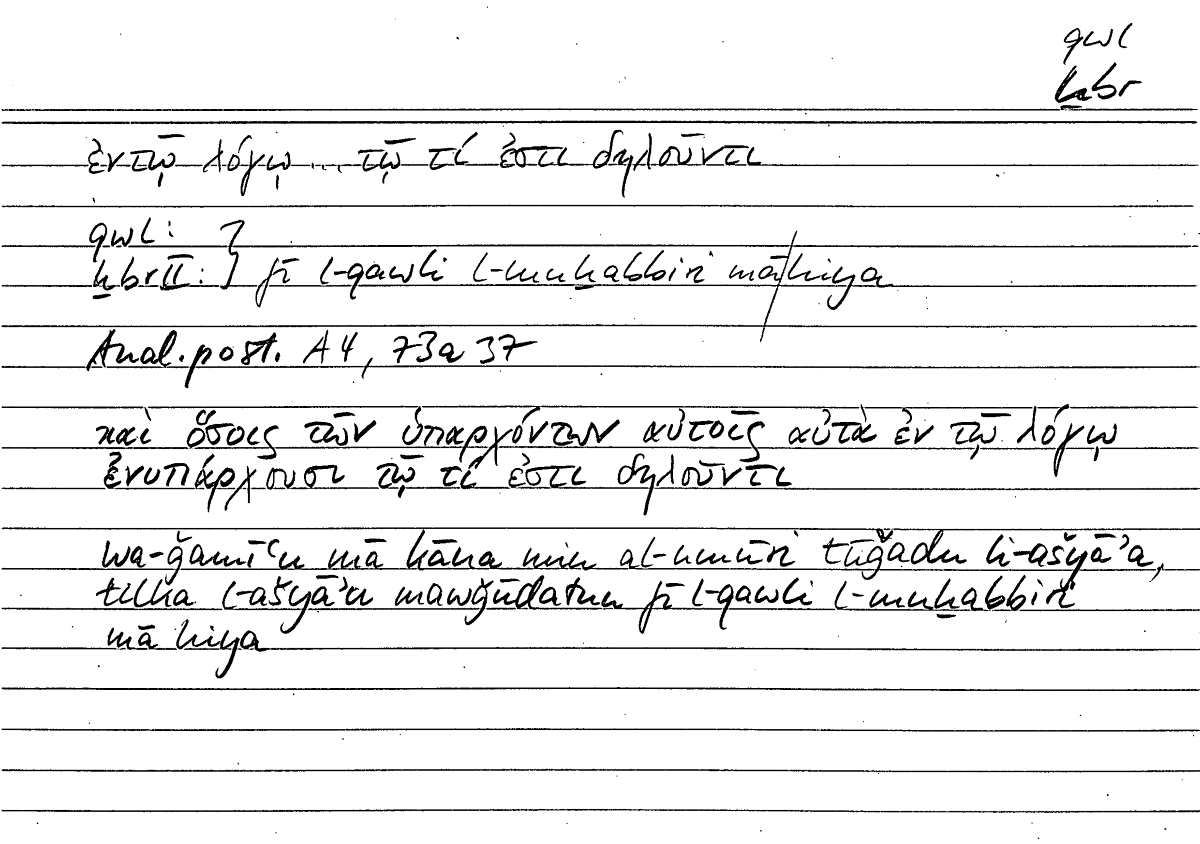 qwl
ḫbr
ἐν τῷ λόγῳ ... τῷ τί ἐστι δηλοῦντι
qwl: }
ḫbr II: } fī l-qawli l-muḫabbiri mā/hiya
Anal. post. A 4, 73a 37
καὶ ὅσοις τῶν ὑπαρχόντων αὐτοῖς αὐτὰ ἐν τῷ λόγῳ
ἐνυπάρχουσι τῷ τί ἐστι δηλοῦντι
wa-ǧamīʿu mā kāna min al-umūri tūǧadu li-ašyāʾa,
tilka l-ašyāʾu mawǧūdatun fī l-qawli l-muḫabbiri
mā hiya